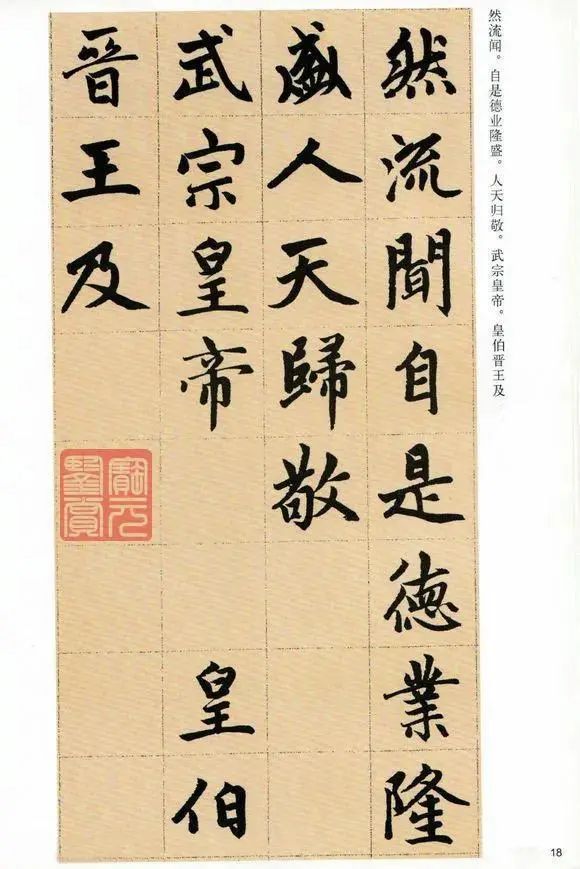 然流闻。自是德业隆盛。人天归敬。武宗皇帝。皇伯晋王及
然流聞自是德業隆
盛人天歸敬
武宗皇帝 皇伯
晉王及
寶元
鑒賞
18